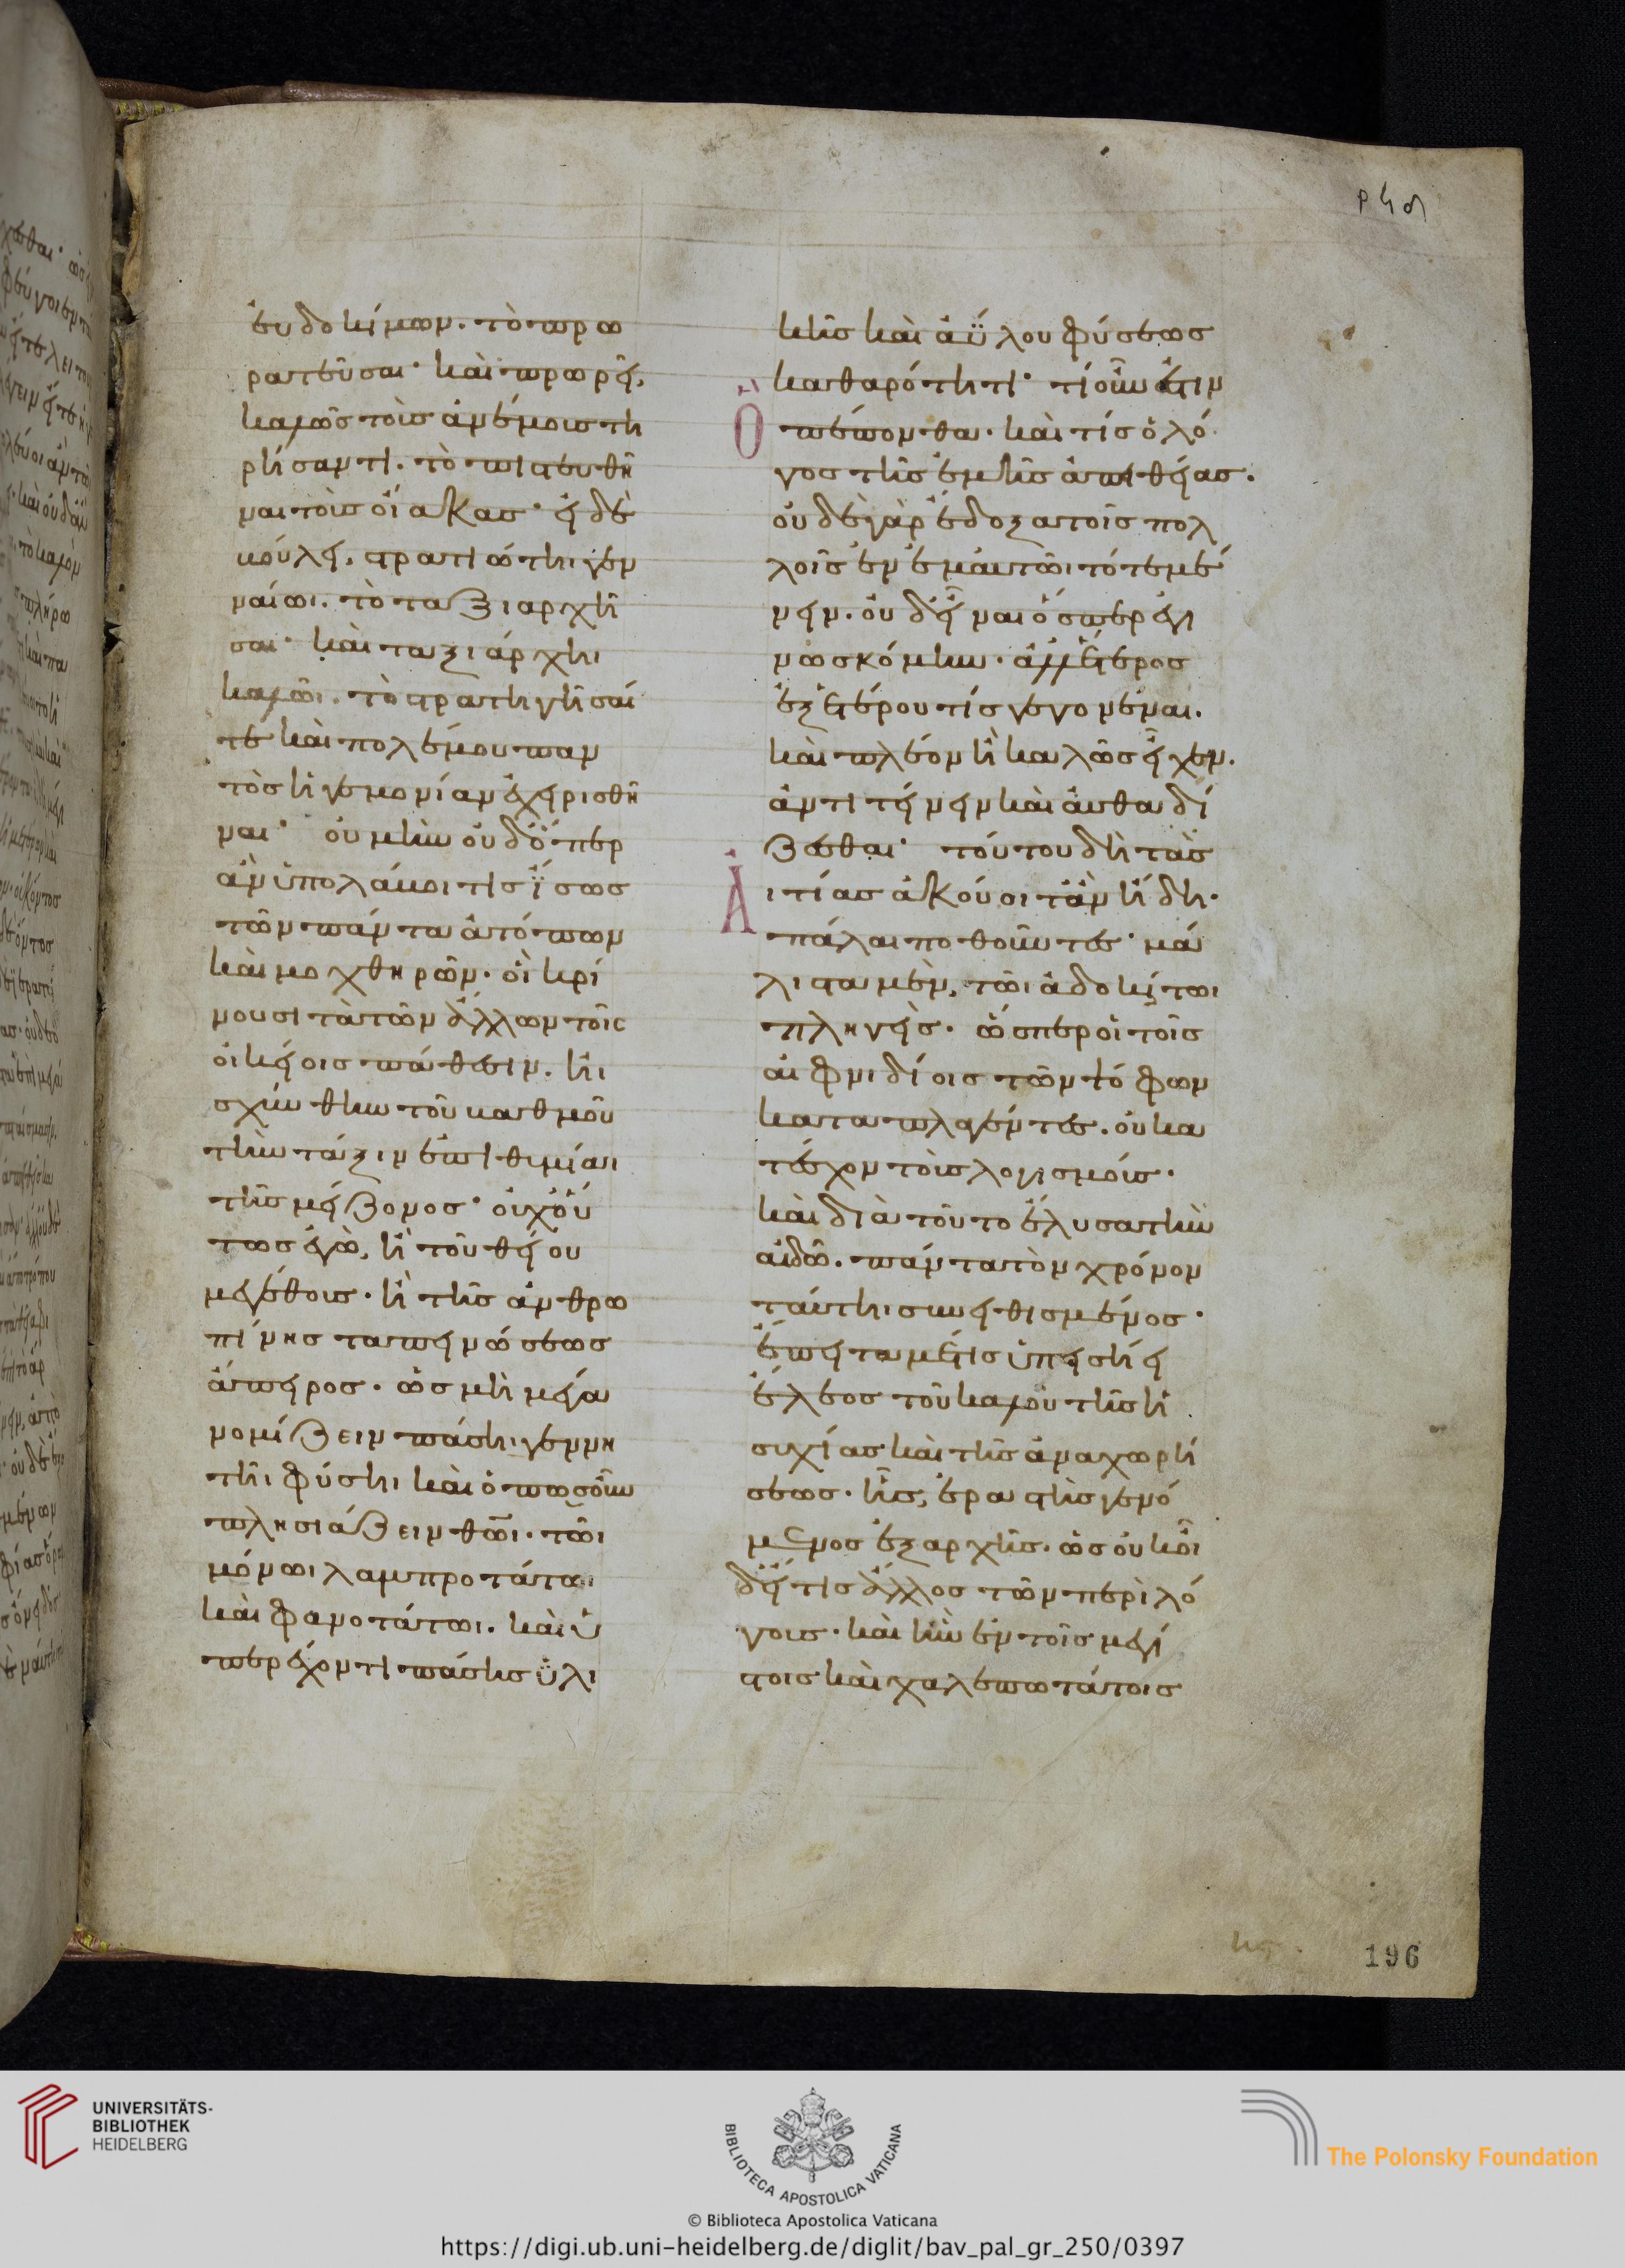 ρϟϛ
εὐδοκίμων. τὸ πρω
ρατεῦσαι· καὶ πρωρεῖ,
καλῶς τοῖς ἀνέμοις τη
ρήσαντι. τὸ πιστευθῆ
ναι τοὺς οἴακας· εἰ δὲ
βούλει, στρατιώτηι γεν
ναίωι. τὸ ταξιαρχῆ
σαι· καὶ ταξιάρχηι
καλῶι. τὸ στρατηγῆσαί
τε καὶ πολέμου παν
τὸς ἡγεμονίαν ἐγχειρισθῆ
ναι· οὐ μὴν οὐδ' ὅπερ
ἂν ὑπολάβοι τις ἴσως
τῶν πάντα ἀτόπων
καὶ μοχθηρῶν. οἳ κρί
νουσι τὰ τῶν ἄλλων τοῖς
οἰκείοις πάθεσιν. ἠι
σχύνθην τοῦ βαθμοῦ
τὴν τάξιν ἐπιθυμίαι
τῆς μείζονος· οὐχ' οὕ
τως ἐγὼ, ἢ τοῦ θείου
μεγέθους. ἢ τῆς ἀνθρω
πίνης ταπεινώσεως
ἄπειρος. ὡς μὴ μέγα
νομίζειν πάσηι γεννη
τῆι φύσηι καὶ ὁπωσοῦν
πλησιάζειν θωι. τῶι
μόνωι λαμπροτάτωι
καὶ φανοτάτωι. καὶ ὑ
περέχοντι πάσης ὑλι
κῆς καὶ ἀΰλου φύσεως
καθαρότητι· τί οὖν ἔστιν
Ὃ πέπονθα. καὶ τίς ὁ λό
γος τῆς ἐμῆς ἀπειθείας.
οὐδὲ γὰρ ἔδοξα τοῖς πολ
λοῖς ἐν ἐμαυτῶι τότε μέ
νειν. οὐδ' εἶναι ὅσπερ ἐγι
νωσκόμην. ἀλλ' ἕτερος
ἐξ ἑτέρου τίς γεγονέναι.
καὶ πλέον ἢ καλῶς εἶχεν.
ἀντιτείνειν καὶ αὐθαδί
ζεσθαι· τούτου δὴ τὰς
Αἰτίας ἀκούοιτ' ἂν ἤδη.
πάλαι ποθοῦντες· μά
λιστα μὲν, τῶι ἀδοκήτωι
πληγεὶς. ὥσπερ οἱ τοῖς
αἰφνιδίοις τῶν ψόφων
καταπλαγέντες. οὐ κα
τέσχον τοὺς λογισμούς.
καὶ διὰ τοῦτο ἔλυσα τὴν
αἰδῶ. πάντα τὸν χρόνον
ταύτηι συνειθισμένος.
ἔπειτα μέ τις ὑπεισήει
ἔλεος τοῦ καλοῦ τῆς ἡ
συχίας καὶ τῆς ἀναχωρή
σεως. ἧς, ἐραστὴς γενό
μενος ἐξ αρχῆς. ὡς οὐκ οἶ
δ' εἴ τις ἄλλος τῶν περὶ λό
γους. καὶ ἣν ἐν τοῖς μεγί
στοις καὶ χαλεπωτάτοις
196
UNIVERSITÄTS-
BIBLIOTHEK
HEIDELBERG
BIBLIOTECA APOSTOLICA VATICANA
The Polonsky Foundation
© Biblioteca Apostolica Vaticana
https://digi.ub.uni-heidelberg.de/diglit/bav_pal_gr_250/0397